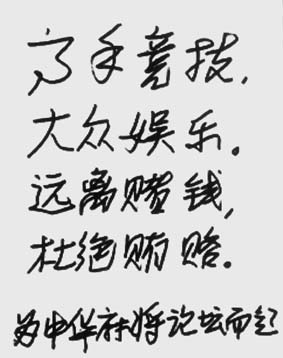 高手竞技,
大众娱乐。
远离赌钱,
杜绝贿赂。
为中华麻将论坛而起